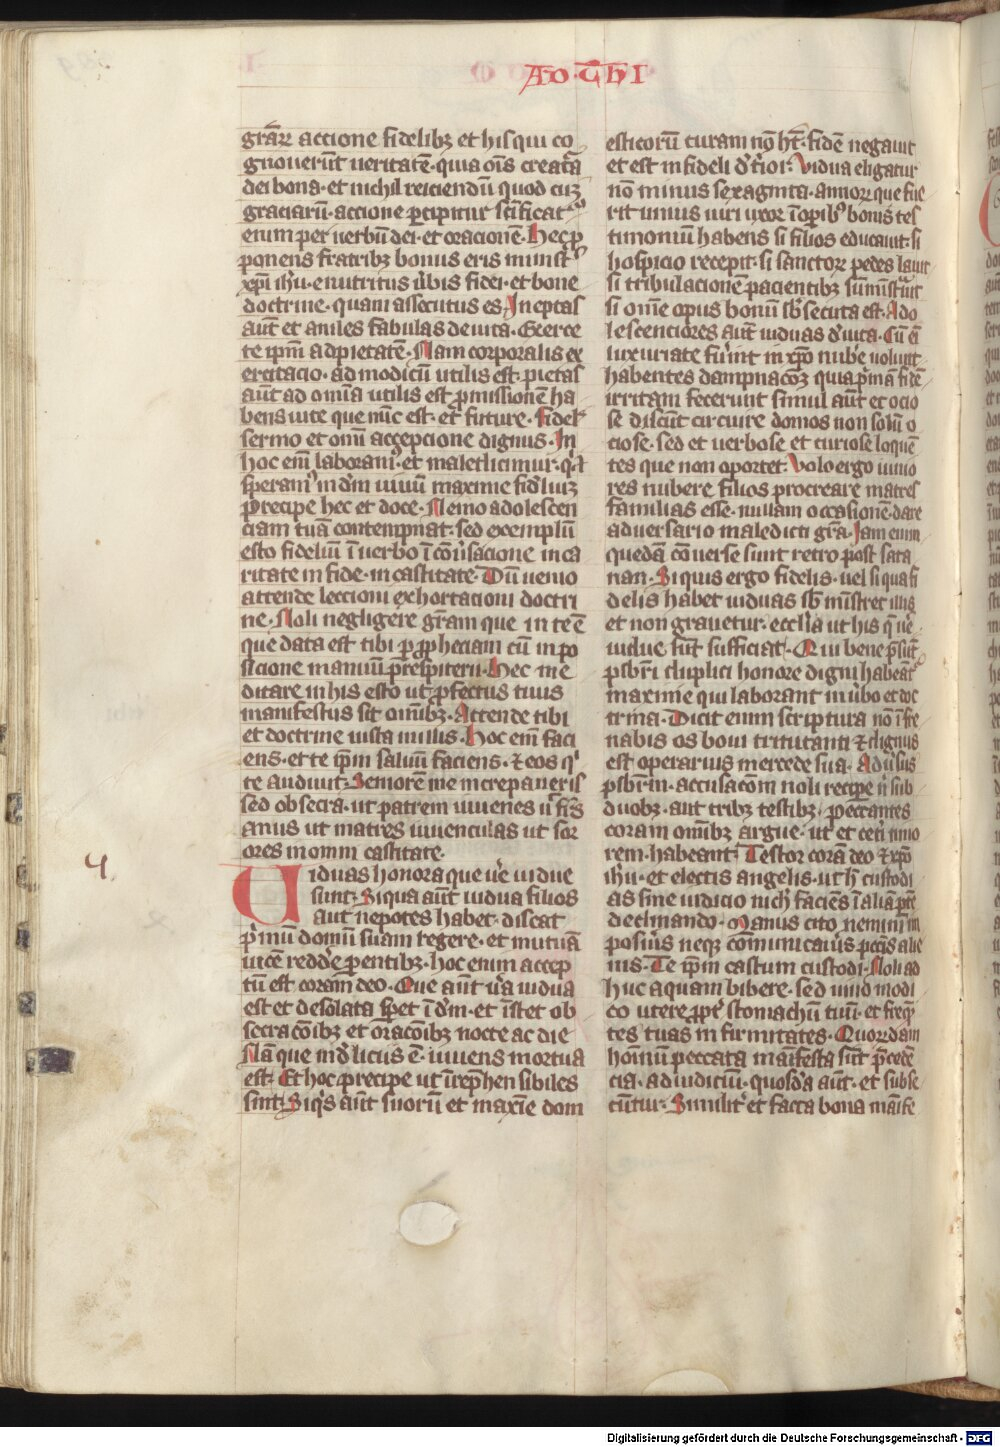 AD·THI
graꝝ accione fidelibꝫ et his qui co
gnouerūt ueritatē· quia oīs creatā
dei bona· et nichil reiciendū quod cuꝫ
graciarū· accione ꝑcipitur sc̄ificatʳ
enim per uerbū dei· et oracionē· Hec ꝓ
ponens fratribꝫ bonus eris minist̄
xp̄i ih̄u· enutritus ūbis fidei· et bone
doctrine· quam assecutus es· Ineptas
aūt et aniles fabulas deuita· Exerce
te ip̄m ad pietatē· Nam corporalis ex
ercitacio· ad modicū utilis est· pietas
aūt ad om̄ia utilis est ꝓmissionē ha
bens uite que nūc est· et future· Fidel̓
sermo et om̄i accepcione dignus· In
hoc em̄ laboram̓· et maledicimur· q̓a
speram̓ in dm̄ uiuū maxime fideliuꝫ
p̄recipe hec et doce· Nemo adolescen
ciam tuā contempnat· sed exemplū
esto fideliū ī uerbo ī cōūsacione in ca
ritate in fide· in castitate· Dū uenio
attende leccioni exhortacioni doctri
ne· Noli negligere grām que in te ē
que data est tibi ꝑ ꝓpheciam cū inpo
sicione manuū p̄resbiterii· Hec me
ditare in his esto ut ꝓfectus tuus
manifestus sit om̄ibꝫ· Attende tibi
et doctrine insta in illis· Hoc em̄ faci
ens· et te ip̄m saluū faciens· ⁊ eos q̓
te audiūt· Seniorē ne increpaueris
sed obsecra· ut patrem iuuenes ut fr̄s
anus ut matres iuuenculas ut sor
ores in omni castitate·
4
Uiduas honora que uēe uidue
sunt· Si qua aūt uidua filios
aut nepotes habet· discat
p̓mū domū suam regere· et mutuā
uicē redde ꝑentibꝫ· hoc enim accep
tū est coram deo· Que aut uēa uidua
est et desolata spet ī dm̄· et īstet ob
secracōibꝫ et oracōibꝫ nocte ac die
Nā que in dēliciis ē· uiuens mortua
est· Et hoc precipe ut irrep̄hensibiles
sint· Si q̓s aūt suorū et maxīe dom
esticorū curam nō ht̄· fidē negauit
et est infideli dēt̓ior· Vidua eligatur
non minus sexaginta· annoꝝ que fue
rit unius uiri uxor ī oꝑibꝫ bonis tes
timoniū habens si filios educauit· si
hospicio recepit· si sanctoꝝ pedes lauit
si tribulacionē pacientibꝫ submīstrauit
si om̄e opus bonū sb̄secuta est· Ado
lescenciores aūt uiduas dēuita· Cū em̄
luxuriate fuēint in xp̄o nubēe uolunt
habentes dampnacōꝫ quia p̓mā fidē
irritam fecerunt simul aūt et ocio
se discūt circuire domos non solū o
ciose· sed et uerbose et curiose loquē
tes que non oportet· Volo ergo iunio
res nubere filios procreare matres
familias esse· nullam occasionē dare
aduersario maledicti grā· Jam enim
quedā conuerse sunt retro post sata
nan· Si quis ergo fidelis· uel si qua fi
delis habet uiduas sb̄mīstret illis
et non grauetur· eccl̄ia ut his q̄ uēe
uidue sūt sufficiat· Qui bene p̄sūt
p̄sbr̄i duplici honore digni habeāt̓
maxime qui laborant in ūbo et doc
trina· Dicit enim scriptura nō īfre
nabis os boui trituranti ⁊ dignus
est operarius mercede sua· Adūsus
p̄sbr̄m· accusacōm noli recipe n̓ sub
duobꝫ· aut tribꝫ testibꝫ· peccantes
coram om̄ibꝫ argue· ut et cet̓i timo
rem· habeant· Testor corā deo ⁊ xp̄o
ih̄u· et electis angelis· ut h̄ custodi
as sine iudicio nich̄ faciēs ī aliā ꝑtē
declinando· Manus cito nemini im
posuēis neqꝫ cōmunicauēis pccīs alie
nis· Te ip̄m castum custodi· Noli ad
huc aquam bibere· sed uino modi
co utere ꝓpt̓ stomachū tuū· et freq̄n
tes tuas infirmitates· Quorūdam
hoīnū peccata manifesta sūt p̄cedē
cia· ad iudiciū· quosdā aūt· et subse
cūtur· Similit̓ et facta bona māife
Digitalisierung gefördert durch die Deutsche Forschungsgemeinschaft - DFG